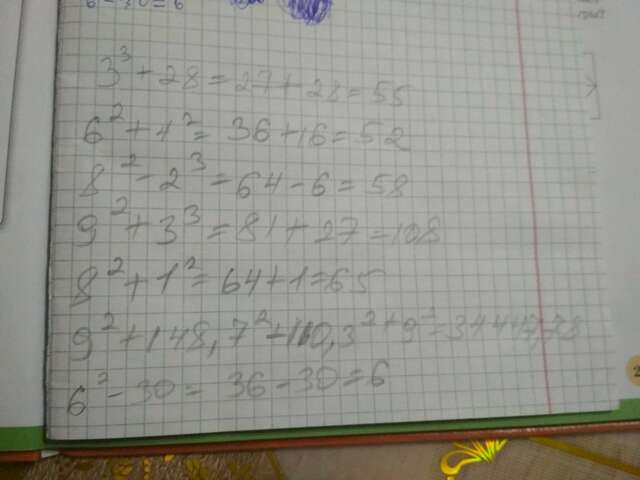 6² - 30 = 6
3³ + 28 = 27 + 28 = 55
6² + 4² = 36 + 16 = 52
8² - 2³ = 64 - 6 = 58
9² + 3³ = 81 + 27 = 108
8² + 1² = 64 + 1 = 65
9² + 148,7² + 110,3² + 9
6² - 30 = 36 - 30 = 6